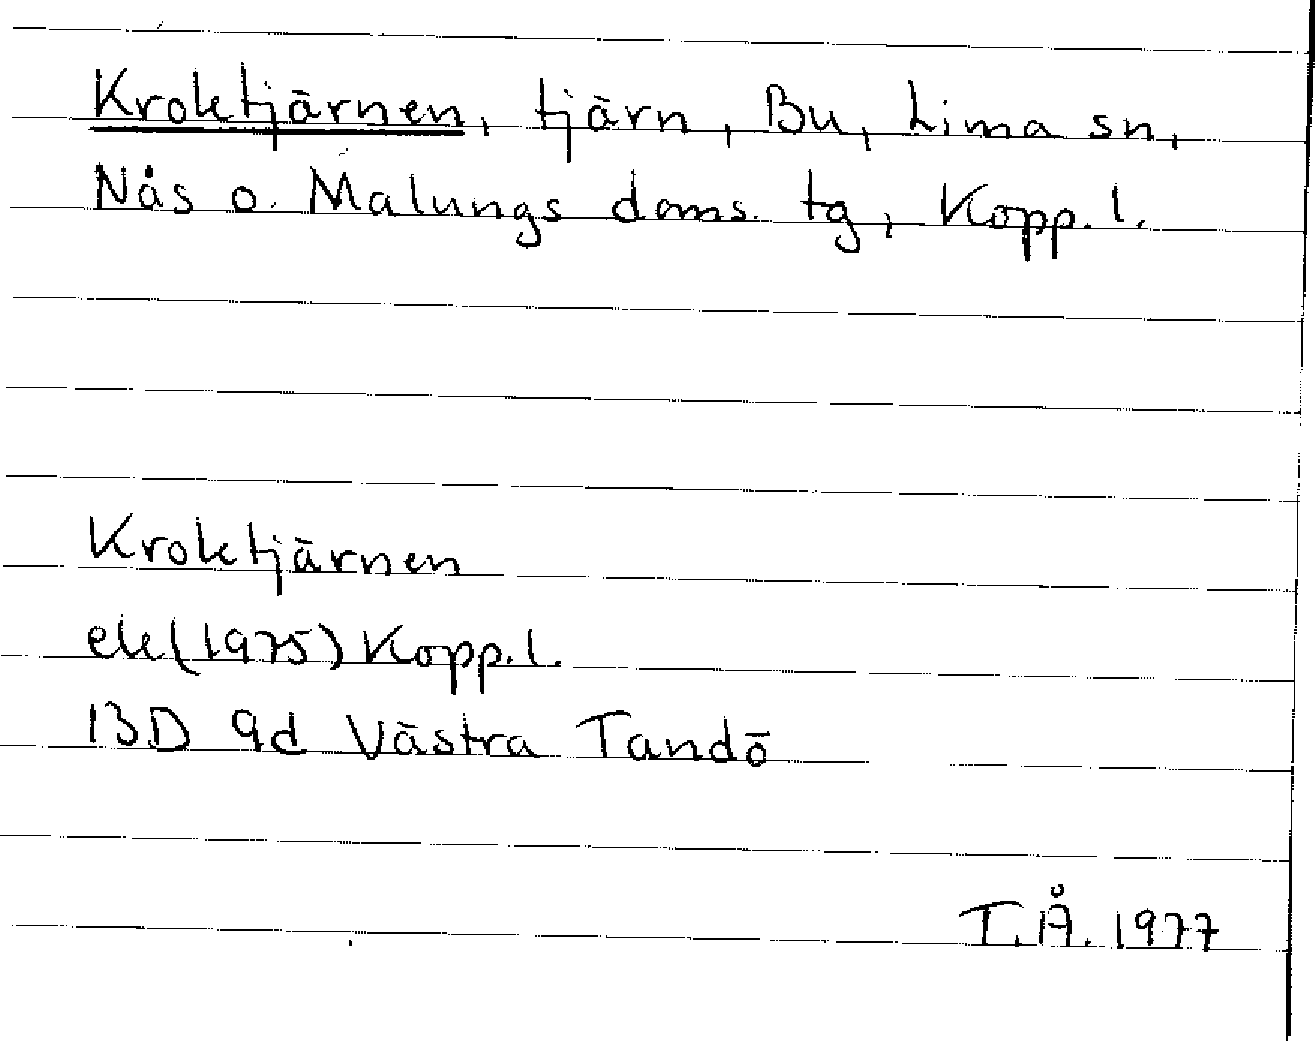 Kroktjärnen, tjärn, Bu, Lima sn,
Nås o. Malungs doms. tg, Kopp. l.
Kroktjärnen
ek (1975) Kopp. l.
13D 9d Västra Tandö
T.Å. 1977